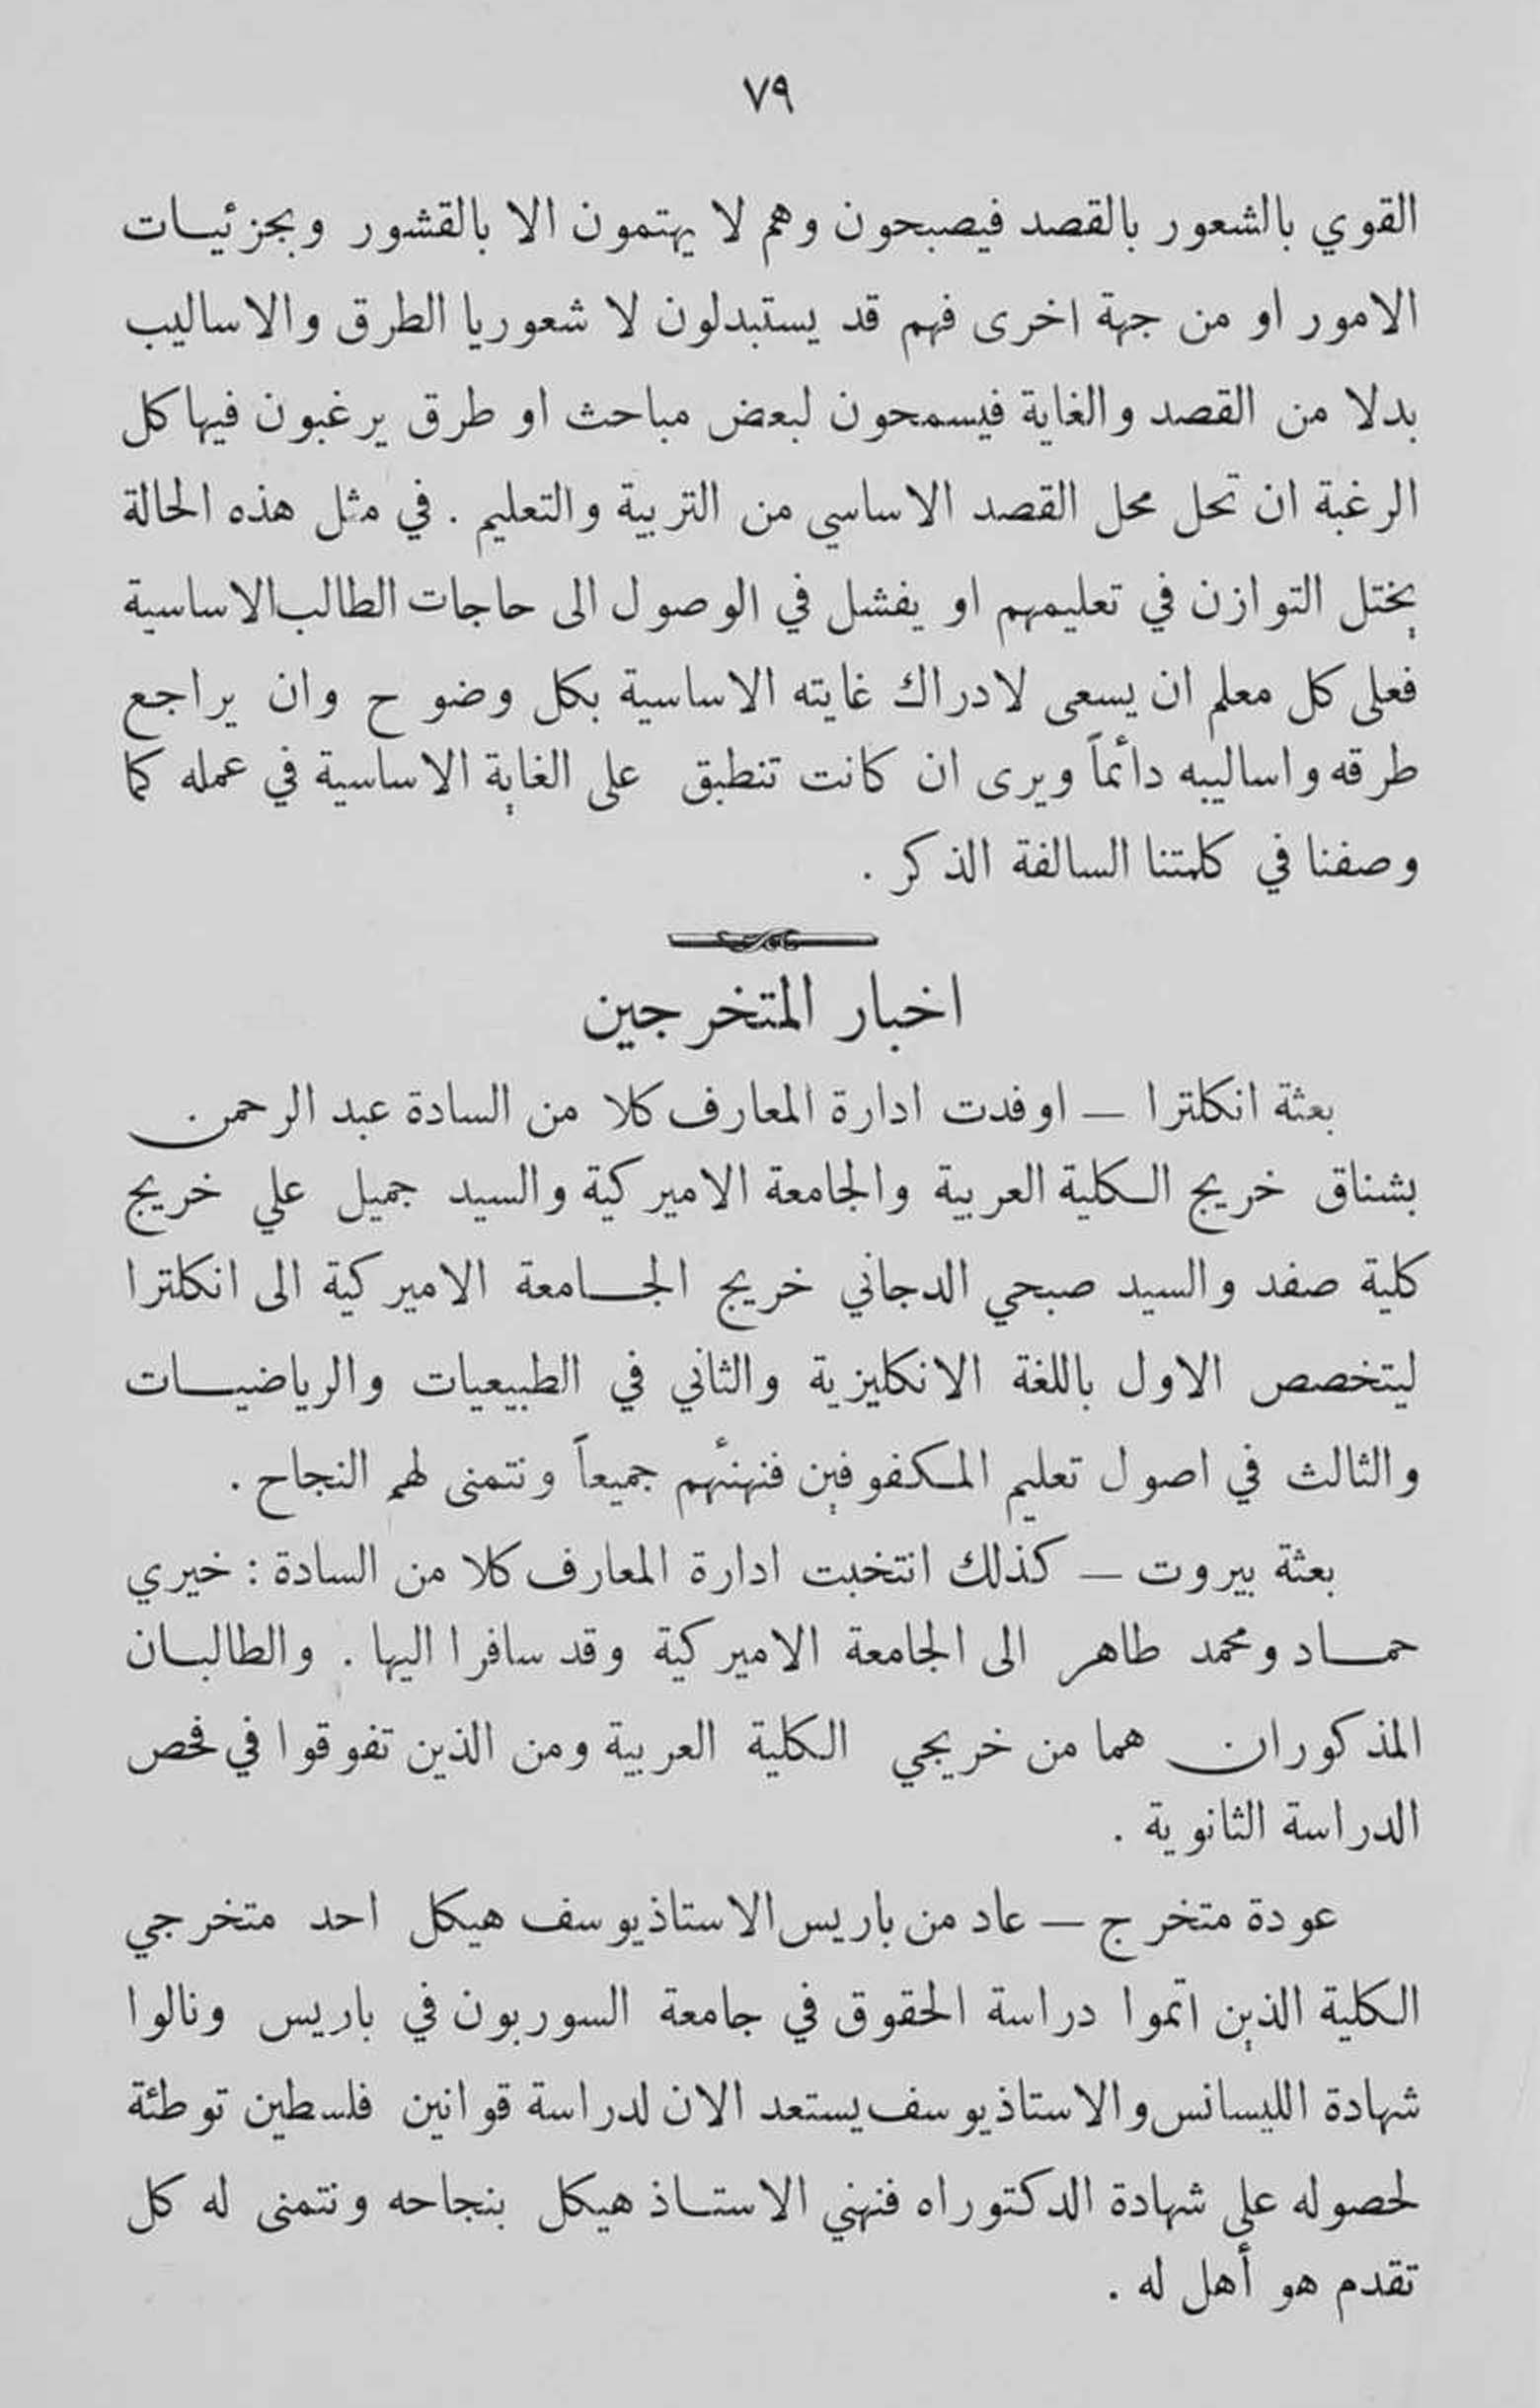 ٧٩
القوي بالشعور بالقصد فيصبحون وهم لا يهتمون الا بالقشور وبجزئيات
الامور او من جهة اخرى فهم قد يستبدلون لا شعوريا الطرق والاساليب
بدلا من القصد والغاية فيسمحون لبعض مباحث او طرق يرغبون فيها كل
الرغبة ان تحل محل القصد الاساسي من التربية والتعليم . في مثل هذه الحالة
يختل التوازن في تعليمهم او يفشل في الوصول الى حاجات الطالب الاساسية
فعلى كل معلم ان يسعى لادراك غايته الاساسية بكل وضوح وان يراجع
طرقه واساليبه دائماً ويرى ان كانت تنطبق على الغاية الاساسية في عمله كما
وصفنا في كلمتنا السالفة الذكر .
اخبار المتخرجين
بعثة انكلترا — اوفدت ادارة المعارف كلا من السادة عبد الرحمن
بشناق خريج الكلية العربية والجامعة الاميركية والسيد جميل علي خريج
كلية صفد والسيد صبحي الدجاني خريج الجامعة الاميركية الى انكلترا
ليتخصص الاول باللغة الانكليزية والثاني في الطبيعيات والرياضيات
والثالث في اصول تعليم المكفوفين فنهنئهم جميعاً ونتمنى لهم النجاح .
بعثة بيروت — كذلك انتخبت ادارة المعارف كلا من السادة : خيري
حماد ومحمد طاهر الى الجامعة الاميركية وقد سافرا اليها . والطالبان
المذكوران هما من خريجي الكلية العربية ومن الذين تفوقوا في فحص
الدراسة الثانوية .
عودة متخرج — عاد من باريس الاستاذ يوسف هيكل احد متخرجي
الكلية الذين اتموا دراسة الحقوق في جامعة السوربون في باريس ونالوا
شهادة الليسانس والاستاذ يوسف يستعد الان لدراسة قوانين فلسطين توطئة
لحصوله على شهادة الدكتوراه فنهني الاستاذ هيكل بنجاحه ونتمنى له كل
تقدم هو أهل له .